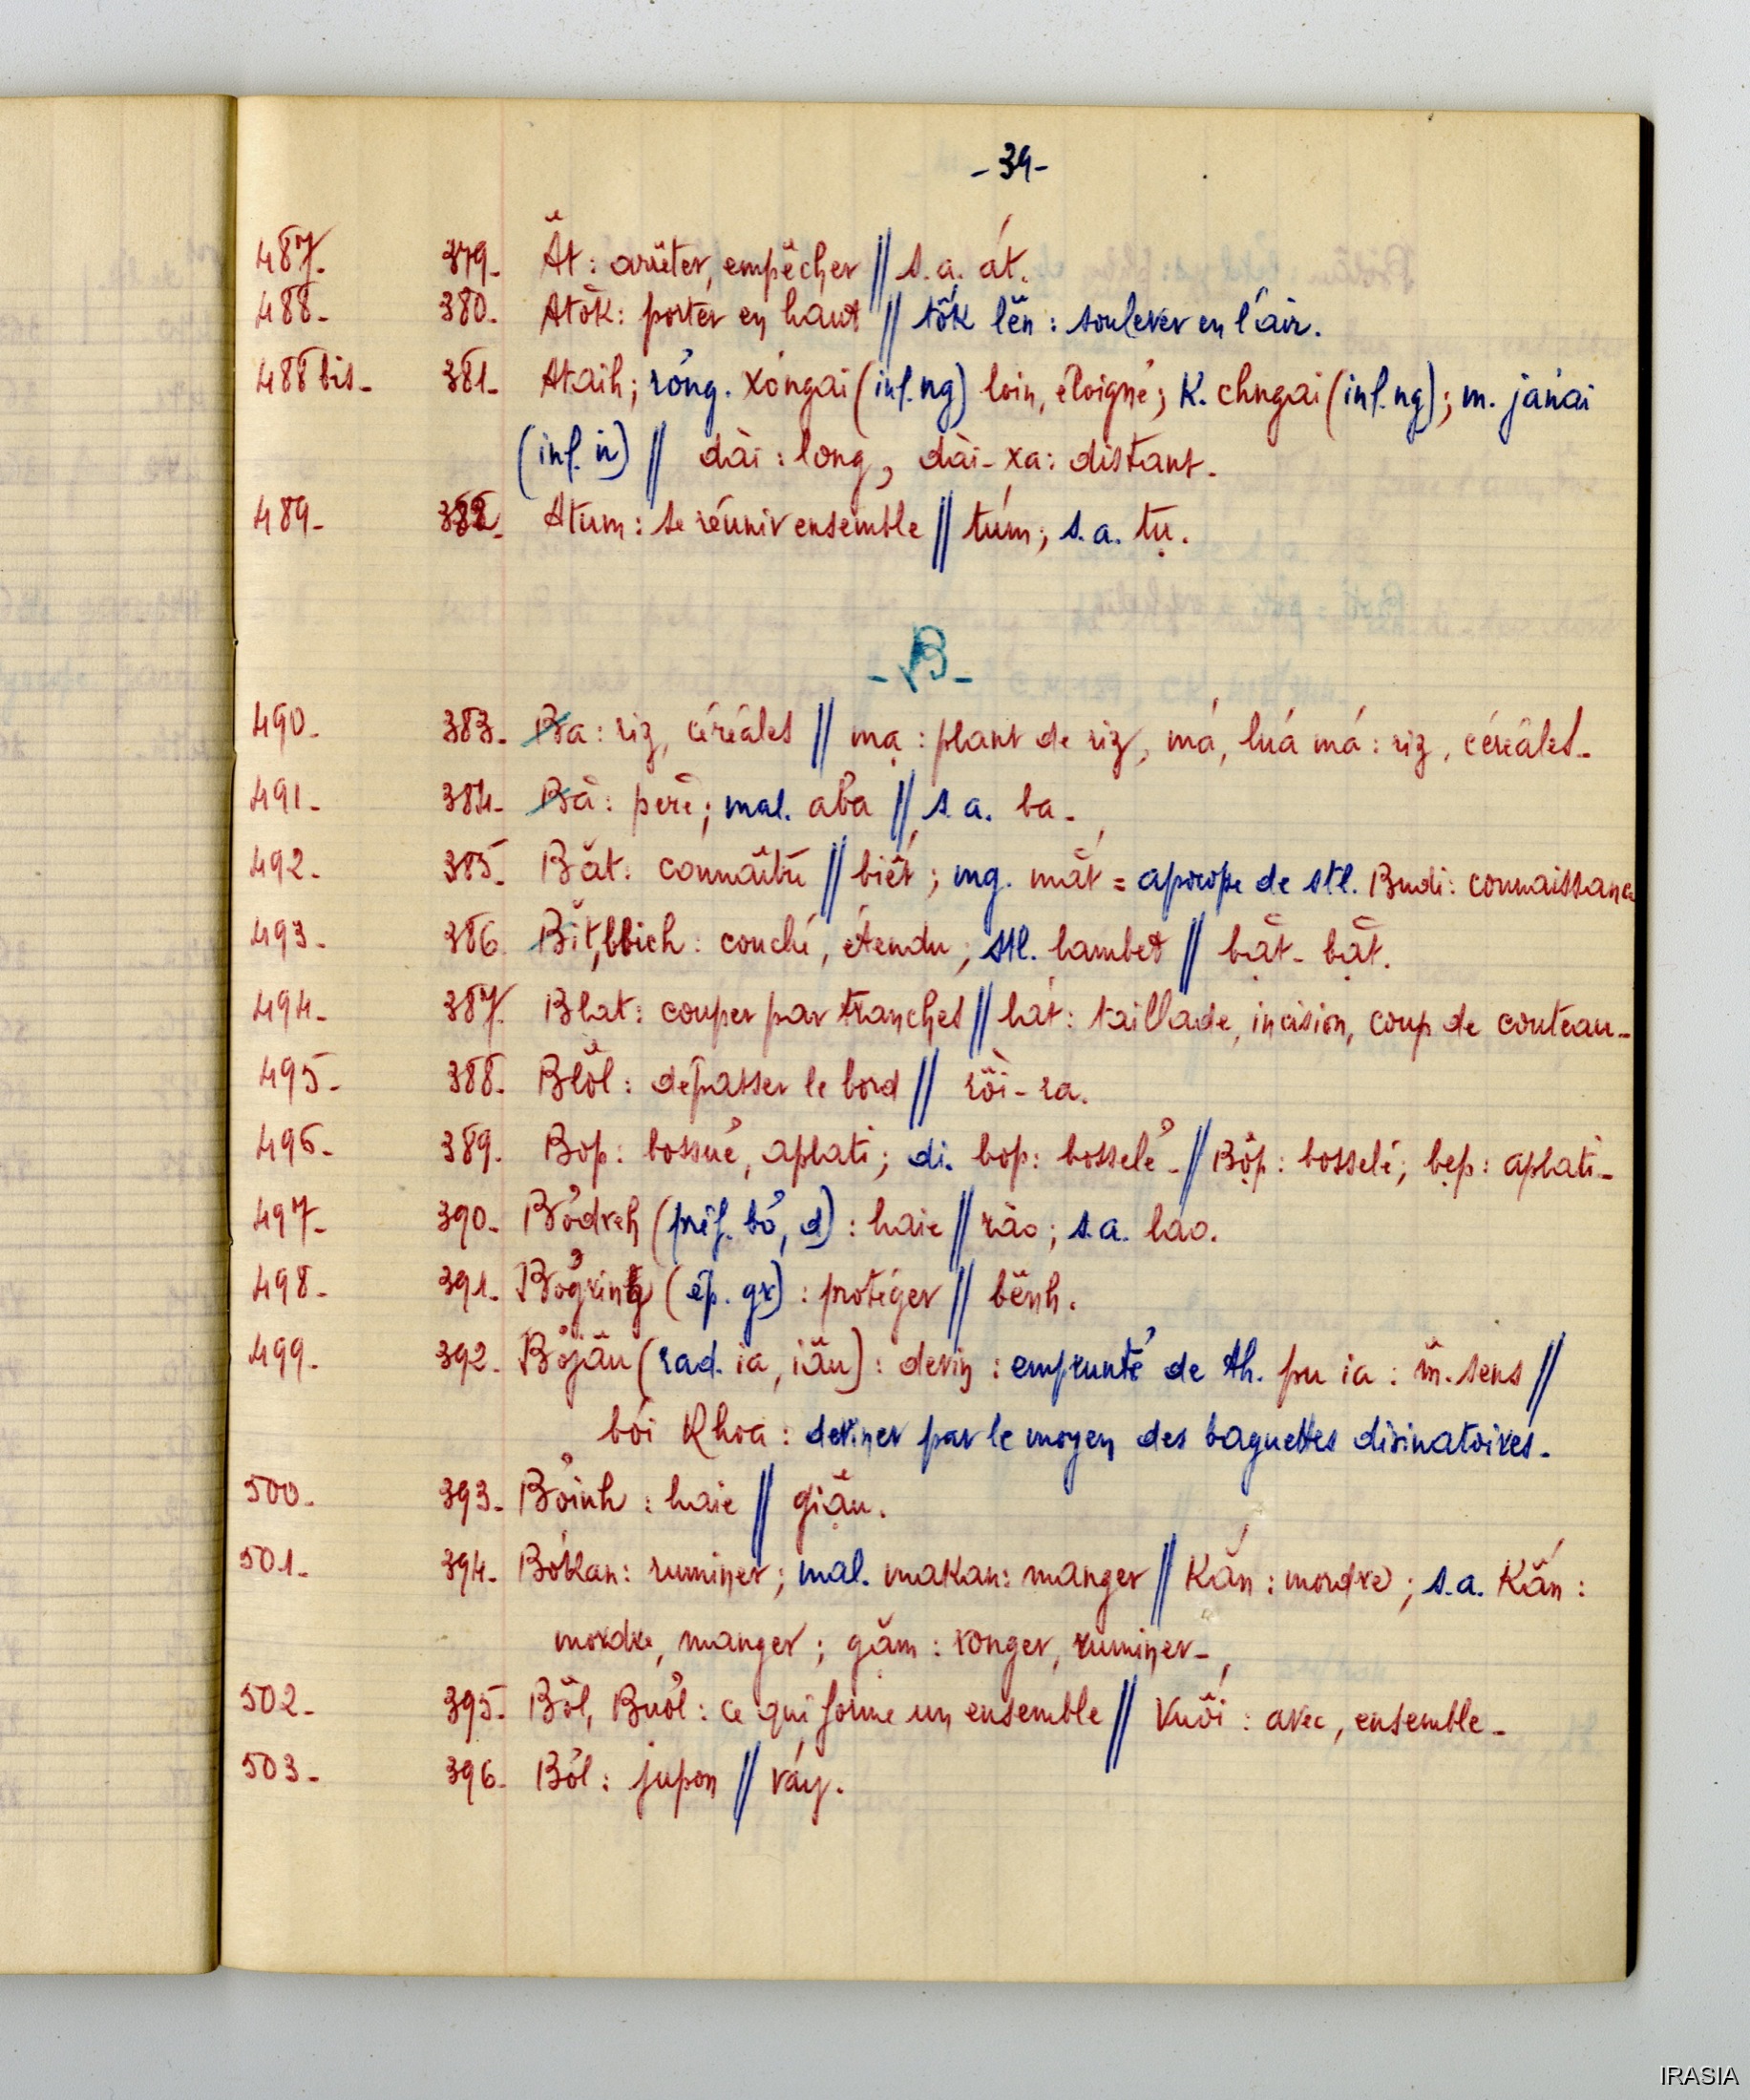 - 39 -
487. 379. Ăt : arrêter, empêcher // s. a. át.
488. 380. Atŏk : porter en haut // tốk lên : soulever en l'air.
488 bis. 381. Ataih ; róng. xóngai (inf. ng) loin, éloigné ; K. chngai (inf. ng) ; m. jańai
(inf. ń) // dài : long, dài-xa : distant.
489. 382. Atum : se réunir ensemble // túm ; s. a. tụ.
- B -
490. 383. Ba : riz, céréales // mạ : plant de riz, má, luá má : riz, céréales.
491. 384. Bă : père ; mal. aba // s. a. ba.
492. 385. Băt : connaître // biết ; mg. măt = apocope de stl. Budi : connaissance
493. 386. Bĭt, bbich : couché, étendu ; stl. lambet // bặt-bặt.
494. 387. Blat : couper par tranches // lát : taillade, incision, coup de couteau.
495. 388. Blŏl : dépasser le bord // rồi-ra.
496. 389. Bop : bossué, aplati ; di. bop : bosselé. // Bộp : bosselé ; bẹp : aplati.
497. 390. Bơdreh (préf. bơ, d) : haie // rào ; s. a. lao.
498. 391. Bơgring (ép. gr) : protéger // bênh.
499. 392. Bơjâu (rad. ia, iâu) : devin : emprunté de th. pu ia : m̂. sens //
bói Khoa : deviner par le moyen des baguettes divinatoires.
500. 393. Bơinh : haie // giậu.
501. 394. Bơkan : ruminer ; mal. makan : manger // Kắn : mordre ; s. a. Kắn :
mordre, manger ; gặm : ronger, ruminer.
502. 395. Bŏl, Buơl : ce qui forme un ensemble // Vuối : avec, ensemble.
503. 396. Bơl : jupon // váy.
IRASIA